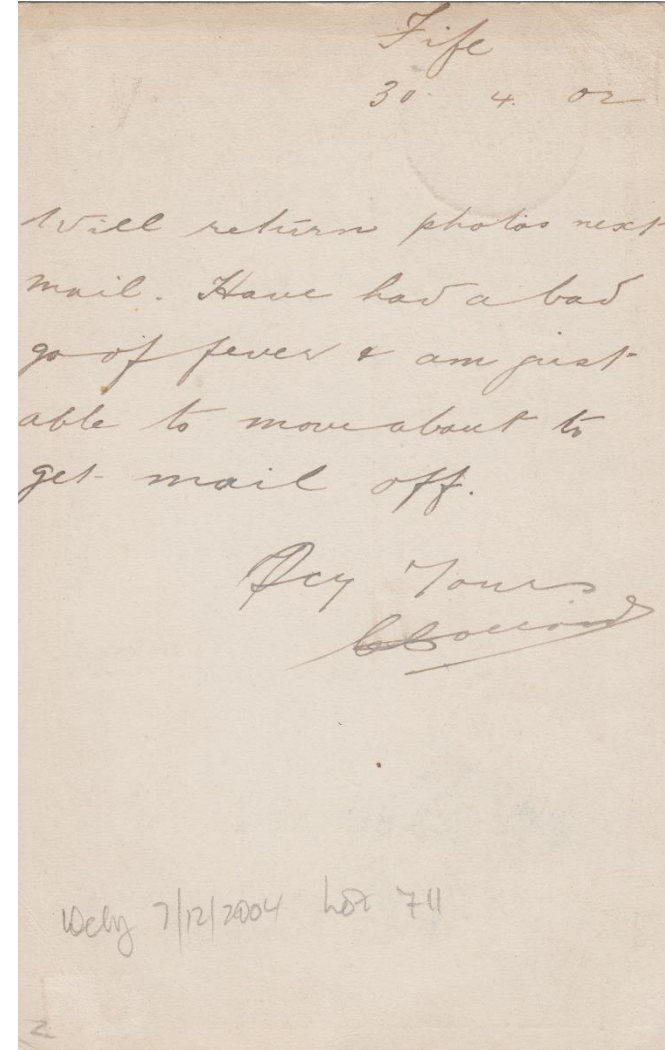 Fife
30. 4. 02
Will return photos next
mail. Have had a bad
go of fever & am just
able to move about to
get mail off.
Yours
7/12/2004 Lot 711
2